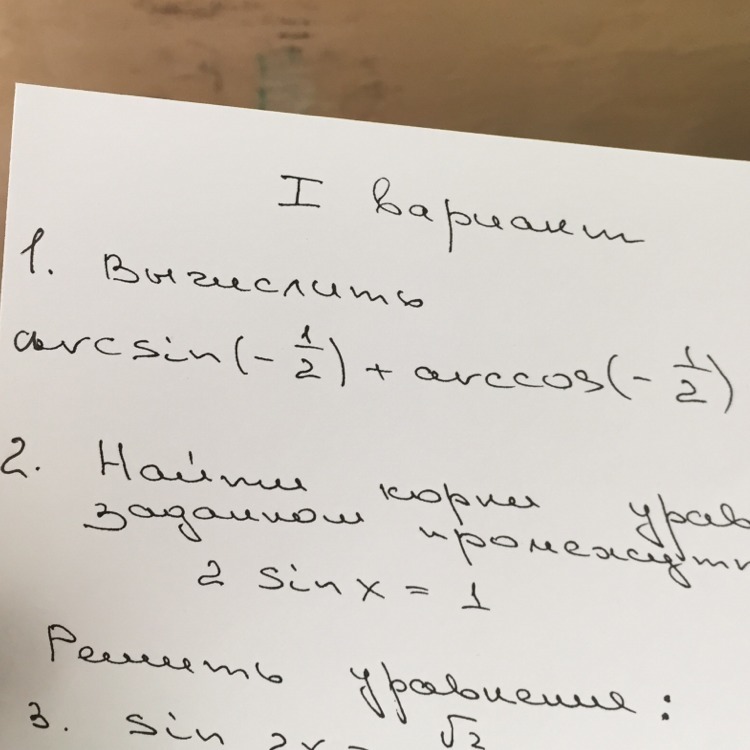 I вариант
1. Вычислить
arcsin(-1/2) + arccos(-1/2)
2. Найти корни
заданном
2 sin x = 1
Решить уравнение:
3. sin 2x = √2